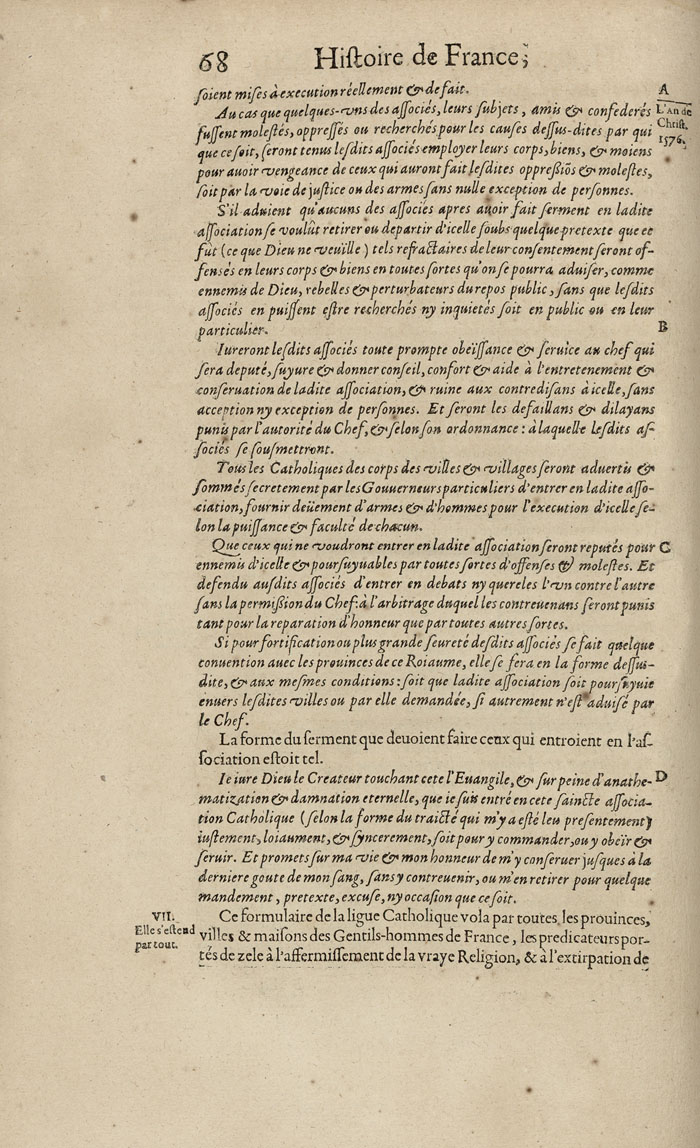 68 Histoire de France,
soient mises à execution réellement & de fait.
A
Au cas que quelques-vns des associés, leurs subjets, amis & confederés
L'An de
Christ.
1576.
fussent molestés, oppressés ou recherchés pour les causes dessus-dites par qui
que ce soit, seront tenus lesdits associés employer leurs corps, biens, & moiens
pour auoir vengeance de ceux qui auront fait lesdites oppressiõs & molestes,
soit par la voie de justice ou des armes sans nulle exception de personnes.
S'il aduient qu'aucuns des associés apres auoir fait serment en ladite
association se voulût retirer ou departir d'icelle soubs quelque pretexte que ce
fût (ce que Dieu ne veuïlle) tels refractaires de leur consentement seront of-
fensés en leurs corps & biens en toutes sortes qu'on se pourra aduiser, comme
ennemis de Dieu, rebelles & perturbateurs du repos public, sans que lesdits
associés en puissent estre recherchés ny inquietés soit en public ou en leur
particulier.
B
Iureront lesdits associés toute prompte obeïssance & seruice au chef qui
sera deputé, suyure & donner conseil, confort & aide à l'entretenement &
conseruation de ladite association, & ruine aux contredisans à icelle, sans
acception ny exception de personnes. Et seront les defaillans & dilayans
punis par l'autorité du Chef, & selon son ordonnance: à laquelle lesdits as-
sociés se sousmettront.
Tous les Catholiques des corps des villes & villages seront aduertis &
sommés secretement par les Gouuerneurs particuliers d'entrer en ladite asso-
ciation, fournir deüement d'armes & d'hommes pour l'execution d'icelle se-
lon la puissance & faculté de chacun.
Que ceux qui ne voudront entrer en ladite association seront reputés pour
C
ennemis d'icelle & poursuyuables par toutes sortes d'offenses & molestes. Et
defendu ausdits associés d'entrer en debats ny quereles l'vn contre l'autre
sans la permißion du Chef: à l'arbitrage duquel les contreuenans seront punis
tant pour la reparation d'honneur que par toutes autres sortes.
Si pour fortification ou plus grande seureté desdits associés se fait quelque
conuention auec les prouinces de ce Roiaume, elle se fera en la forme dessus-
dite, & aux mesmes conditions: soit que ladite association soit poursuyuie
enuers lesdites villes ou par elle demandée, si autrement n'est aduisé par
le Chef.
La forme du serment que deuoient faire ceux qui entroient en l'as-
sociation estoit tel.
Ie iure Dieu le Createur touchant cete l'Euangile, & sur peine d'anathe-
D
matization & damnation eternelle, que ie suis entré en cete saincte associa-
tion Catholique (selon la forme du traicté qui m'y a esté leu presentement)
iustement, loiaument, & syncerement, soit pour y commander, ou y obeïr &
seruir. Et promets sur ma vie & mon honneur de m'y conseruer jusques à la
derniere goute de mon sang, sans y contreuenir, ou m'en retirer pour quelque
mandement, pretexte, excuse, ny occasion que ce soit.
VII.
Elle s'estend
par tout.
Ce formulaire de la ligue Catholique vola par toutes les prouinces,
villes & maisons des Gentils-hommes de France, les predicateurs por-
tés de zele à l'affermissement de la vraye Religion, & à l'extirpation de